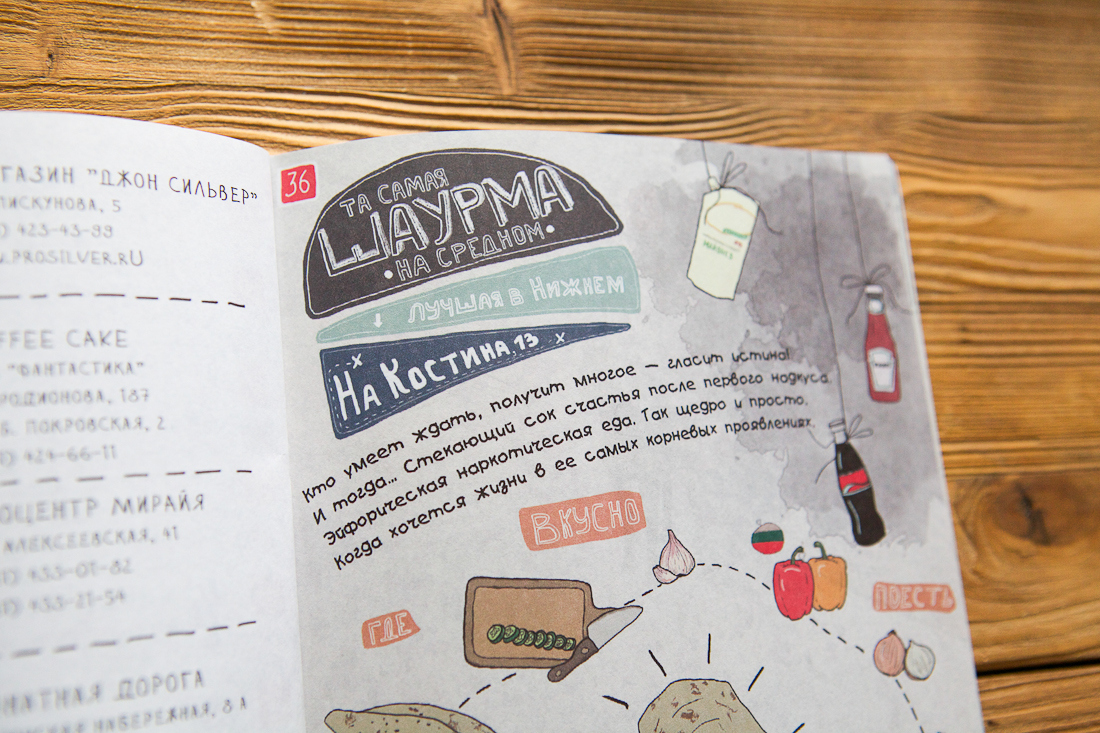 ГАЗИН "ДЖОН СИЛЬВЕР"
ПИСКУНОВА, 5
423-43-99
W.PROSILVER.RU
FFEE CAKE
"ФАНТАСТИКА"
РОДИОНОВА, 187
Б. ПОКРОВСКАЯ, 2
424-66-11
ОЦЕНТР МИРАЙЯ
АЛЕКСЕЕВСКАЯ, 41
433-07-82
433-21-54
НАТНАЯ ДОРОГА
НАБЕРЕЖНАЯ, 8 А
36
ТА САМАЯ
ШАУРМА
•НА СРЕДНОМ•
ЛУЧШАЯ В НИЖНЕМ
НА КОСТИНА, 13
Кто умеет ждать, получит многое — гласит истина!
И тогда... Стекающий сок счастья после первого надкуса.
Эйфорическая наркотическая еда. Так щедро и просто.
Когда хочется жизни в ее самых корневых проявлениях.
ВКУСНО
ГДЕ
ПОЕСТЬ